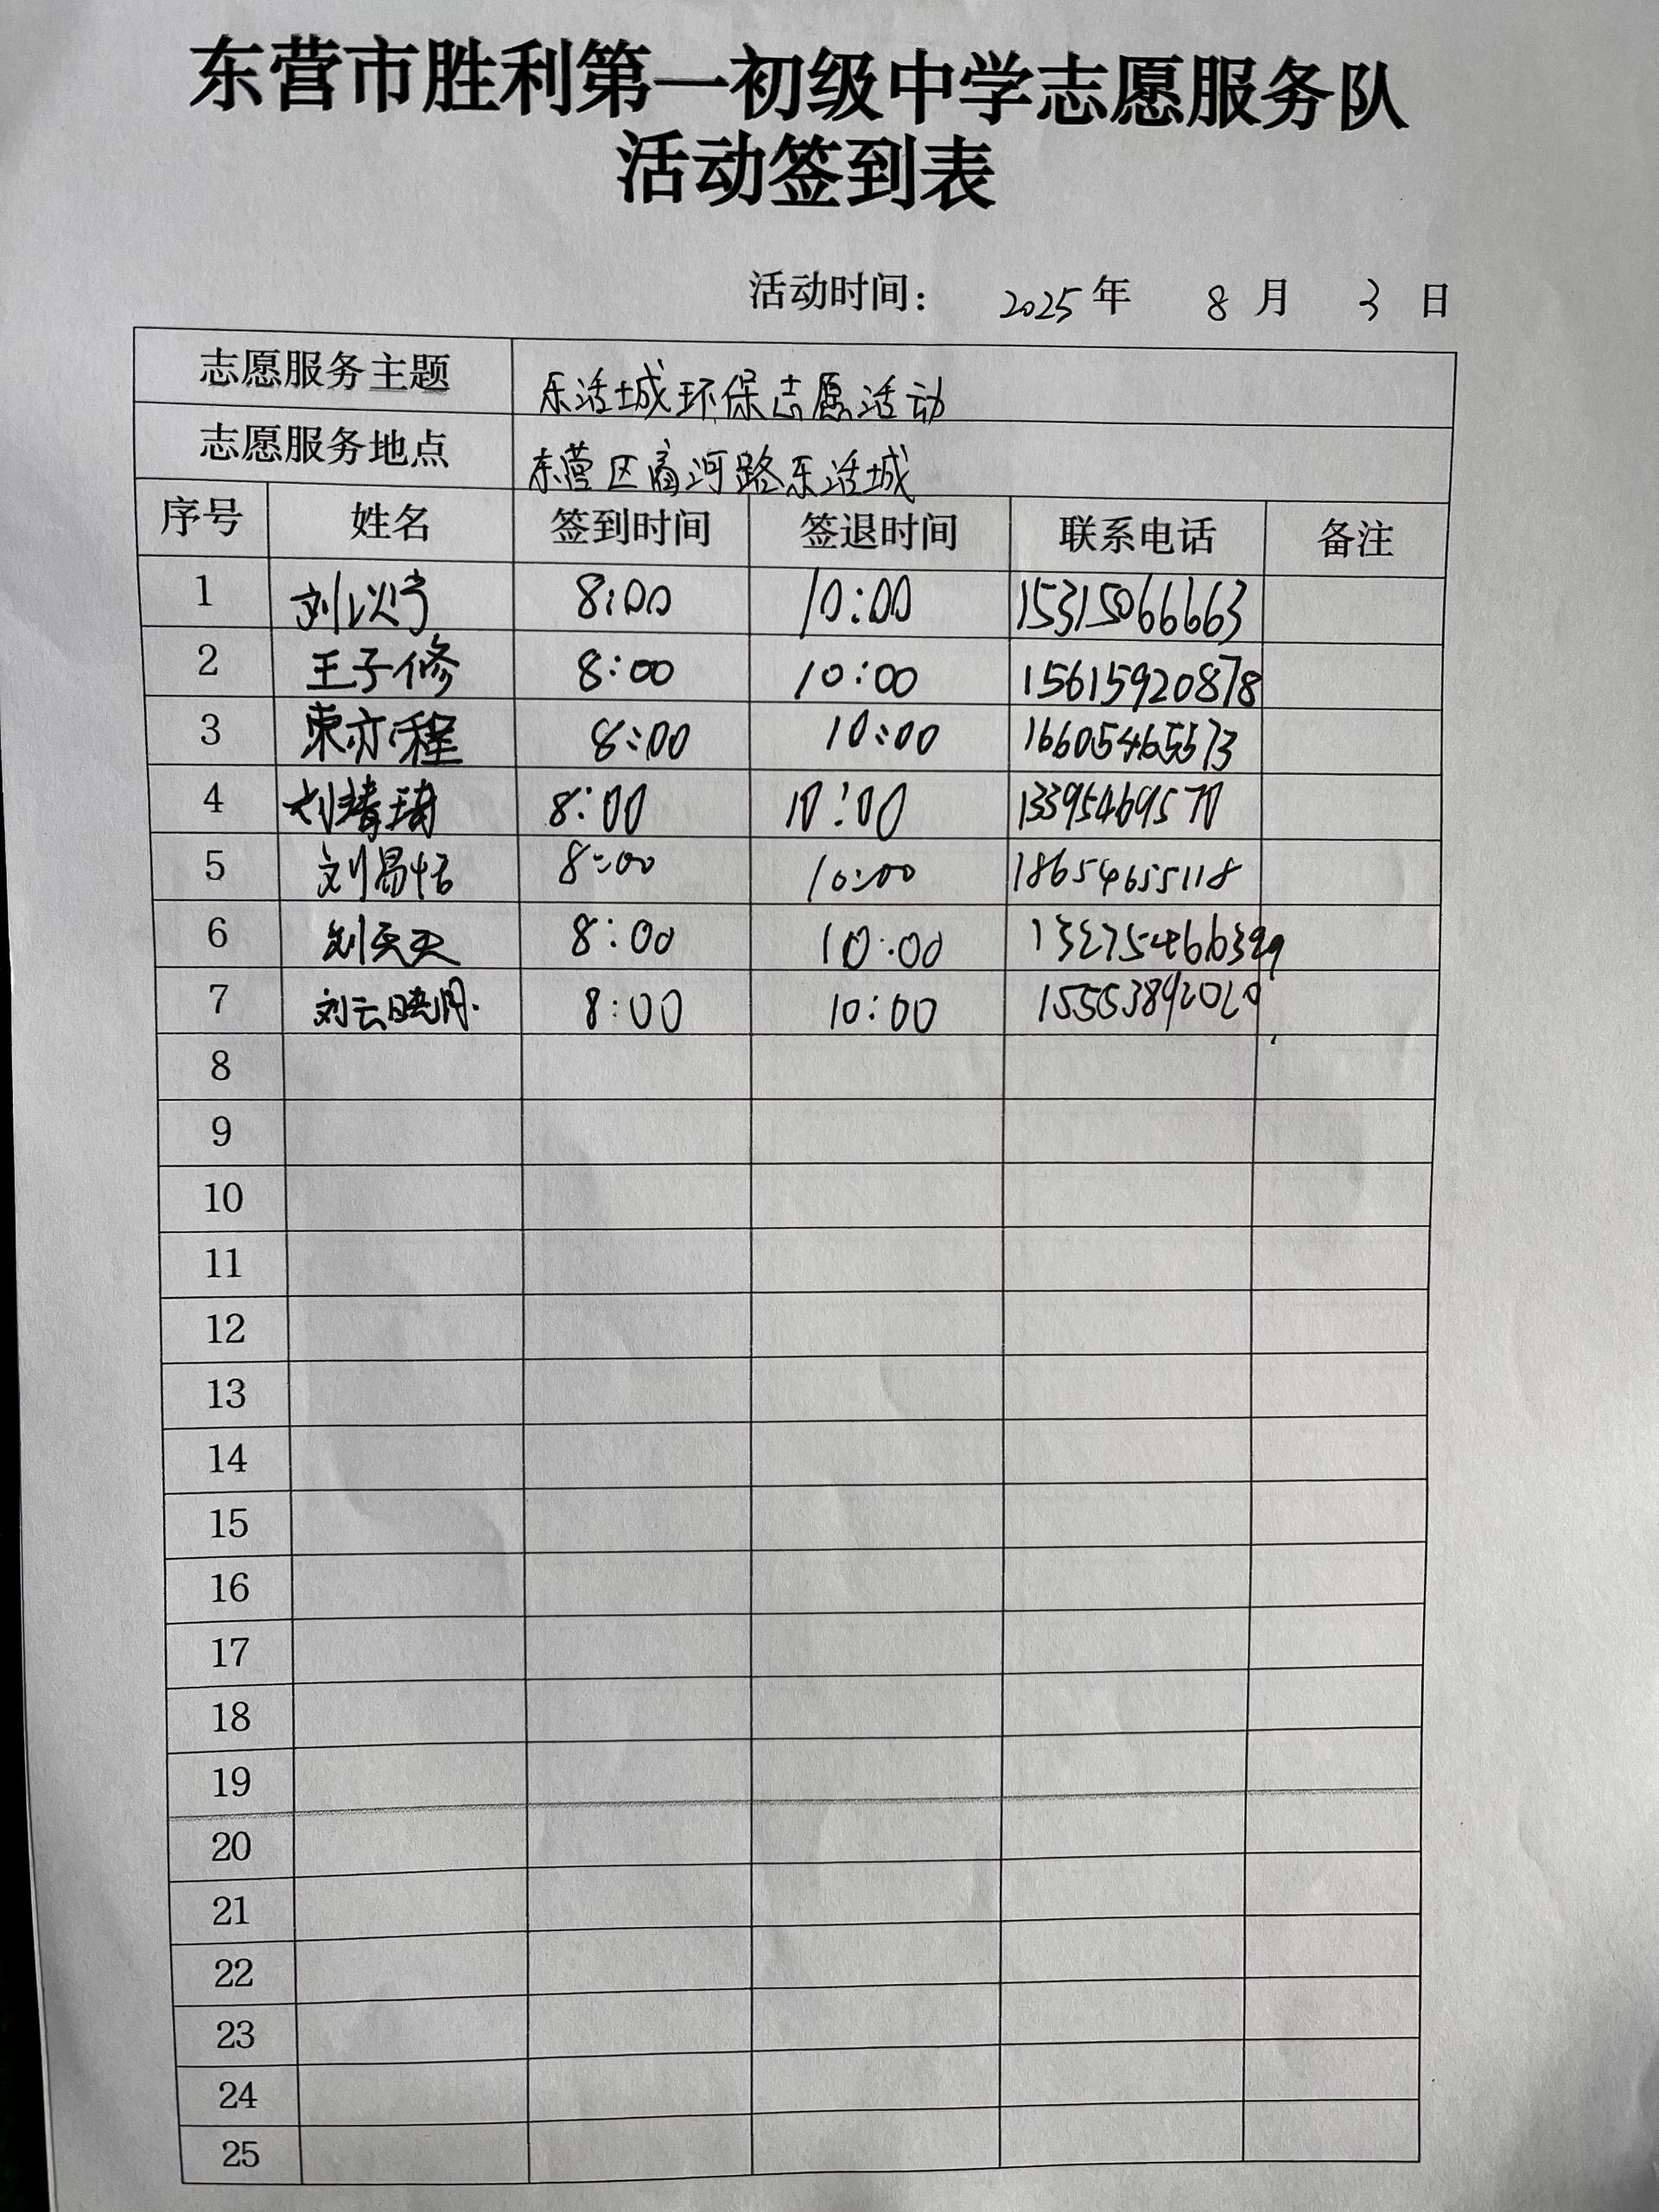 东营市胜利第一初级中学志愿服务队
活动签到表
活动时间： 2025 年 8 月 3 日
志愿服务主题 乐活城环保志愿活动
志愿服务地点 东营区商河路乐活城
序号 姓名 签到时间 签退时间 联系电话 备注
1 刘以宁 8:00 10:00 15315066663
2 王子修 8:00 10:00 15615920878
3 束亦程 8:00 10:00 16605465573
4 8:00 10:00
5 刘易恬 8:00 10:00 18654655118
6 刘天天 8:00 10:00
7 刘云 8:00 10:00
8
9
10
11
12
13
14
15
16
17
18
19
20
21
22
23
24
25